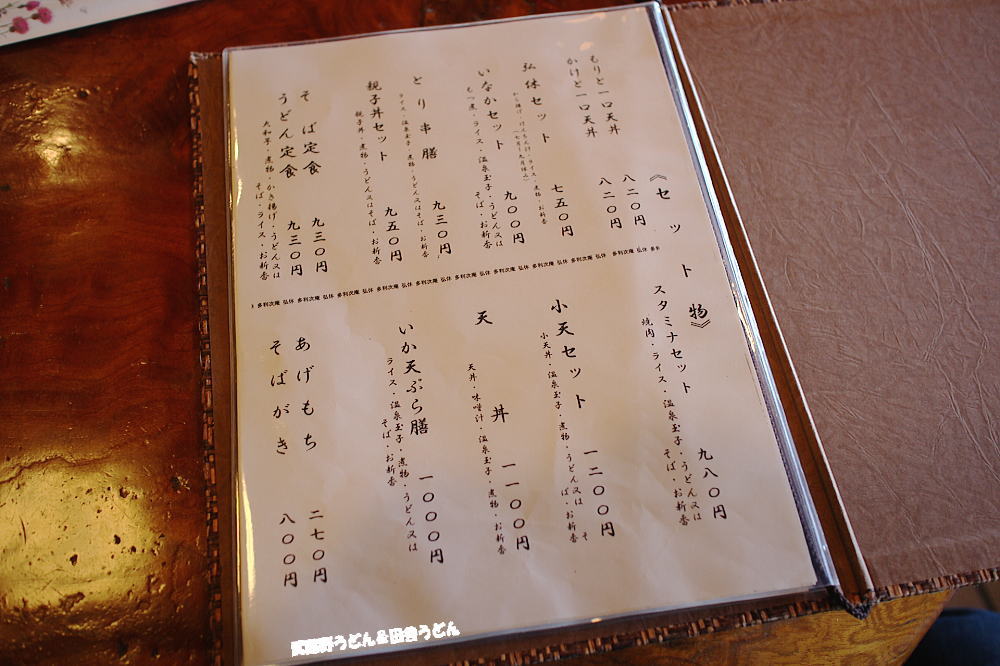 《セット物》
もりと一口天丼 八二〇円
かけと一口天丼 八二〇円
弘休セット 七五〇円
いなかセット 九〇〇円
もつ煮・ライス・温泉玉子・うどん又は
そば・お新香
とり串膳 九三〇円
ライス・温泉玉子・煮物・うどん又はそば・お新香
親子丼セット 九五〇円
親子丼・煮物・うどん又はそば・お新香
そば定食 九三〇円
うどん定食 九三〇円
大和芋・煮物・かき揚げ・うどん又は
そば・ライス・お新香
多利次庵 弘休 多利次庵 弘休 多利次庵 弘休 多利次庵 弘休 多利次庵 弘休 多利次庵 弘休 多利次庵 弘休 多利次庵 弘休 多利次庵 弘休 多利
スタミナセット 九八〇円
焼肉・ライス・温泉玉子・うどん又は
そば・お新香
小天セット 一二〇〇円
小天丼・温泉玉子・煮物・うどん又は そ
ば・お新香
天丼 一一〇〇円
天丼・味噌汁・温泉玉子・煮物・お新香
いか天ぷら膳 一〇〇〇円
ライス・温泉玉子・煮物・うどん又は
そば・お新香
あげもち 二七〇円
そばがき 八〇〇円
武蔵野うどん&田舎うどん